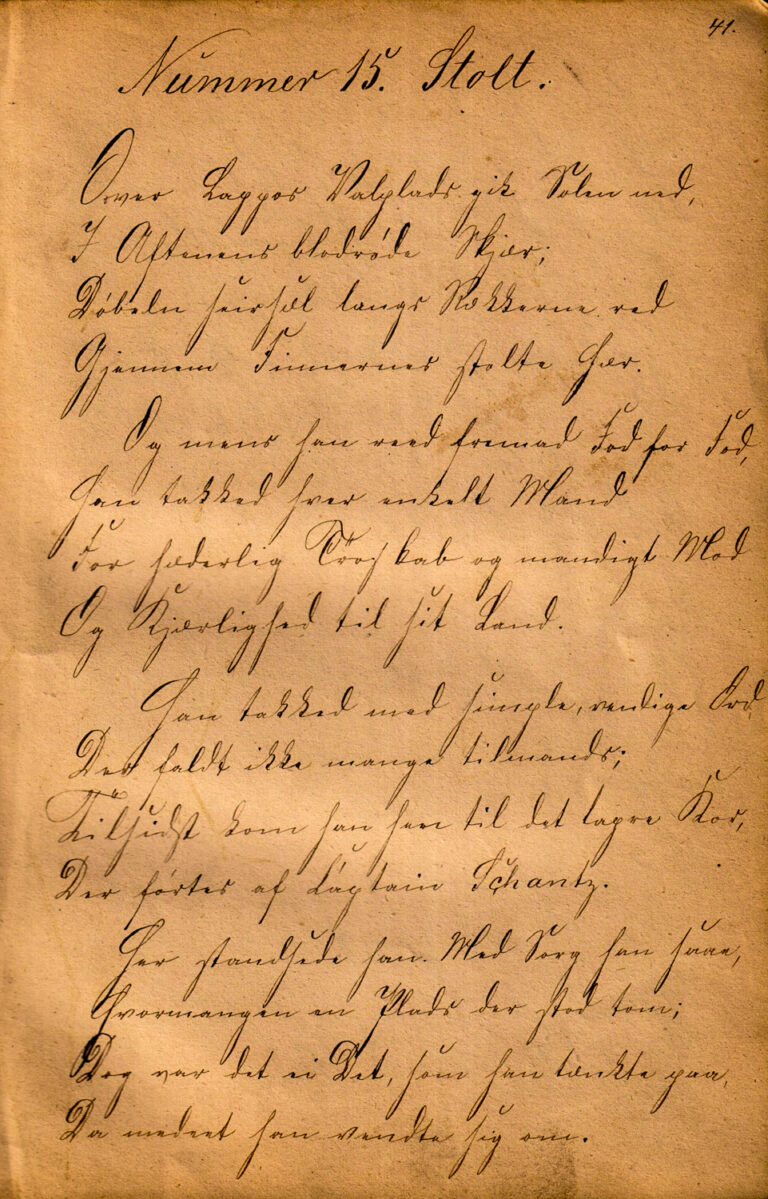 41.
Nummer 15. Stolt.
Over Lappos Valplads gik Solen ned,
I Aftenens blodrøde Skjær;
Døbeln seirsæl langs Rækkerne red
Gjennem Finnernes stolte Hær.
Og mens han reed fremad Fod for Fod,
Han takked hver enkelt Mand
For hæderlig Troskab og mandigt Mod
Og Kjærlighed til sit Land.
Han takked med simple, venlige Ord,
Der faldt ikke mange tilmands;
Tilsidst kom han hen til det tapre Kor,
Der førtes af Captain Schantz.
Her standsede han. Med Sorg han saae,
Hvormangen en Plads der stod tom;
Dog var det ei Det, som han tænkte paa,
Da medeet han vendte sig om.